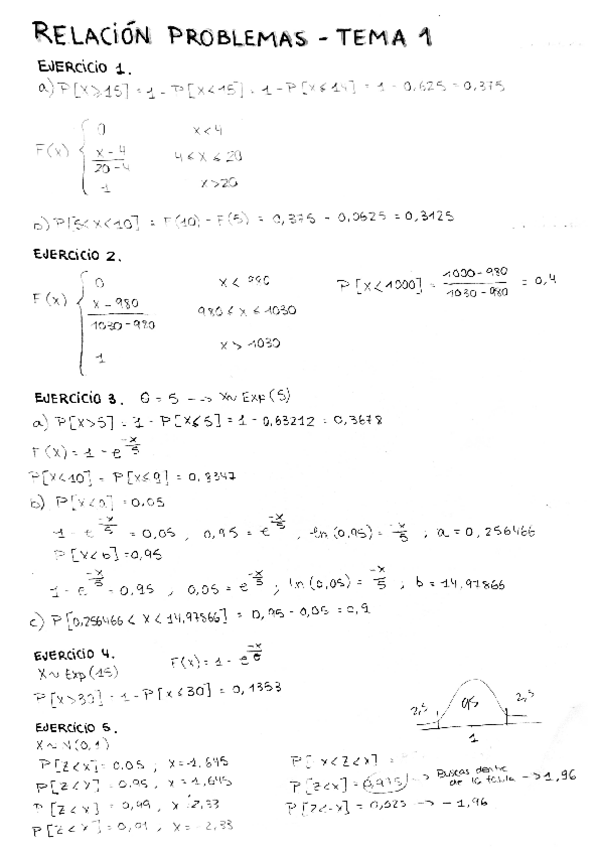 RELACIÓN PROBLEMAS - TEMA 1
EJERCICIO 1.
a) P[X⩾15] = 1 - P[X<15] = 1 - P[X≤14] = 1 - 0,625 = 0,375
F(x) { 0 x<4
x-4/20-4 4≤x≤20
1 x>20
b) P[5<X<10] = F(10) - F(5) = 0,375 - 0,0625 = 0,3125
EJERCICIO 2.
F(x) { 0 x < 980
x-980/1030-980 980≤x≤1030
1 x > 1030
P[X<1000] = 1000-980/1030-980 = 0,4
EJERCICIO 3. θ = 5 --> X~Exp(5)
a) P[X>5] = 1 - P[X≤5] = 1 - 0,63212 = 0,3678
F(x) = 1 - e^-x/5
P[X<10] = P[X≤9] = 0,8347
b) P[X<a] = 0,05
1 - e^-x/5 = 0,05, 0,95 = e^-x/5, ln(0,95) = -x/5 ; a = 0,256466
P[X<b] = 0,95
1 - e^-x/5 = 0,95, 0,05 = e^-x/5 ; ln(0,05) = -x/5 ; b = 14,97866
c) P[0,256466 < X < 14,97866] = 0,95 - 0,05 = 0,9
EJERCICIO 4.
X~Exp(15) F(x) = 1 - e
P[X>30] = 1 - P[X≤30] = 0,1353
EJERCICIO 5.
X~N(0,1)
P[Z<x] = 0,05 ; x=-1,645
P[Z<x] = 0,95, x = 1,645
P[Z<x] = 0,99, x = 2,33
P[Z<x] = 0,01, x = -2,33
2,5 95 2,5
1
P[-x<Z<x] =
P[Z<x] = 0,975 -> Buscas dentro de la tabla -> 1,96
P[Z<-x] = 0,025 --> -1,96